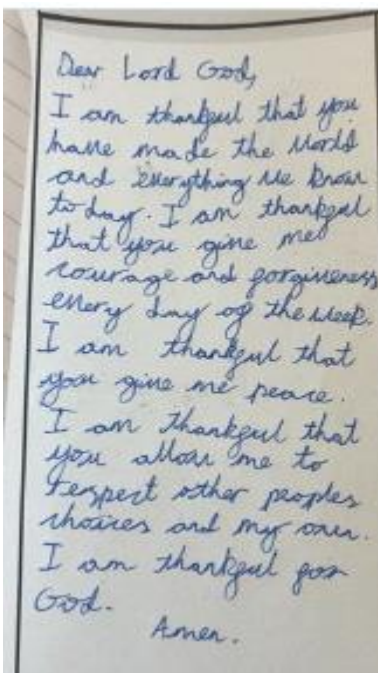 Dear Lord God,
I am thankful that you
have made the world
and everything we know
today. I am thankful
that you give me
courage and forgiveness
every day of the week.
I am thankful that
you give me peace.
I am thankful that
you allow me to
respect other peoples
choices and my own.
I am thankful for
God.
Amen.